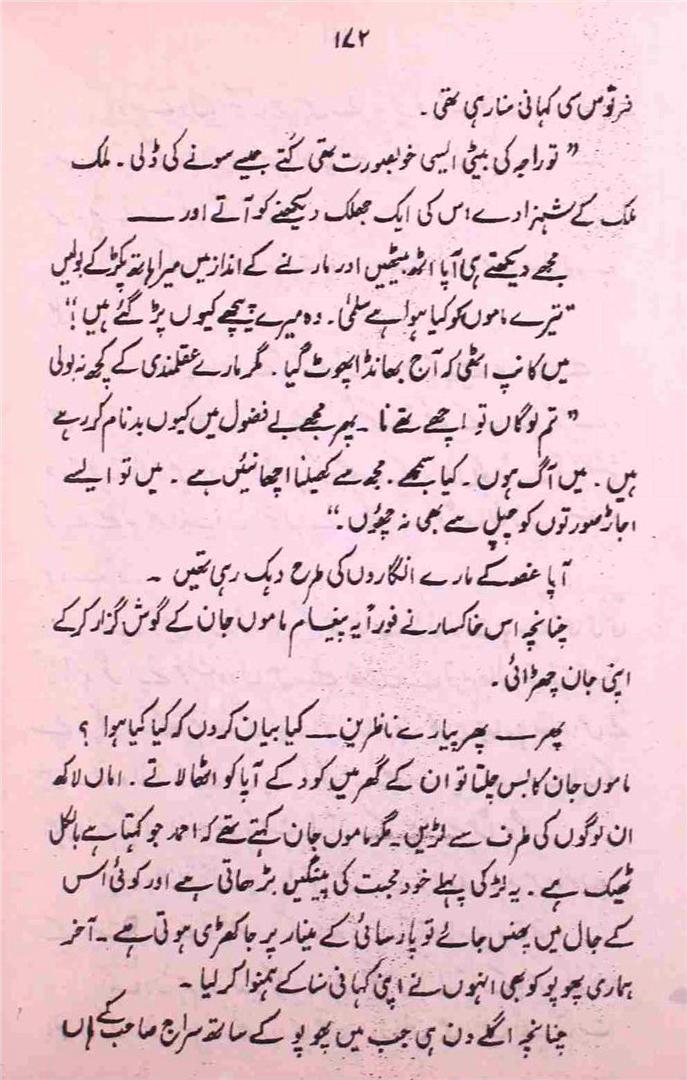 ۱۷۲
فرقوس سی کہانی سنا رہی تھی۔
" تو راجہ کی بیٹی ایسی خوبصورت تھی کُتے جیسے سونے کی ڈلی۔ ملک
ملک کے شہزادے اس کی ایک جھلک دیکھنے کو آتے اور ــــ
مجھے دیکھتے ہی آپا اٹھ بیٹھیں اور مارنے کے انداز میں میرا ہاتھ پکڑ کے بولیں
" تیرے ماموں کو کیا ہوا ہے سلمیٰ۔ وہ میرے پیچھے کیوں پڑ گئے ہیں!"
میں کانپ اٹھی کہ آج بھانڈا پھوٹ گیا۔ مگر مارے عقلمندی کے کچھ نہ بولی
" تم لوگاں تو اچھے تھے نا۔ پھر مجھے بے فضول میں کیوں بدنام کر رہے
ہیں۔ میں آگ ہوں۔ کیا سمجھے۔ مجھ سے کھیلنا اچھا نئیں ہے۔ میں تو ایسے
اجاڑ صورتوں کو چپل سے بھی نہ چھوؤں۔"
آپا غصہ کے مارے انگاروں کی طرح دہک رہی تھیں۔
چنانچہ اس خاکسار نے فوراً یہ پیغام ماموں جان کے گوش گزار کر کے
اپنی جان چھڑائی۔
پھر ــــ پھر پیارے ناظرین ــــ کیا بیان کروں کہ کیا کیا ہوا ؟
ماموں جان کا بس چلتا تو ان کے گھر میں کود کے آپا کو اٹھا لاتے۔ اماں لاکھ
ان لوگوں کی طرف سے لڑیں۔ مگر ماموں جان کہتے تھے کہ احمد جو کہتا ہے بالکل
ٹھیک ہے۔ یہ لڑکی پہلے خود محبت کی پینگیں بڑھاتی ہے اور کوئی اس
کے جال میں پھنس جائے تو پارسائی کے مینار پر جا کھڑی ہوتی ہے۔ آخر
ہماری پھوپو کو بھی انہوں نے اپنی کہانی سنا کے ہمنوا کر لیا۔
چنانچہ اگلے دن ہی جب میں پھوپو کے ساتھ سراج صاحب کے ہاں